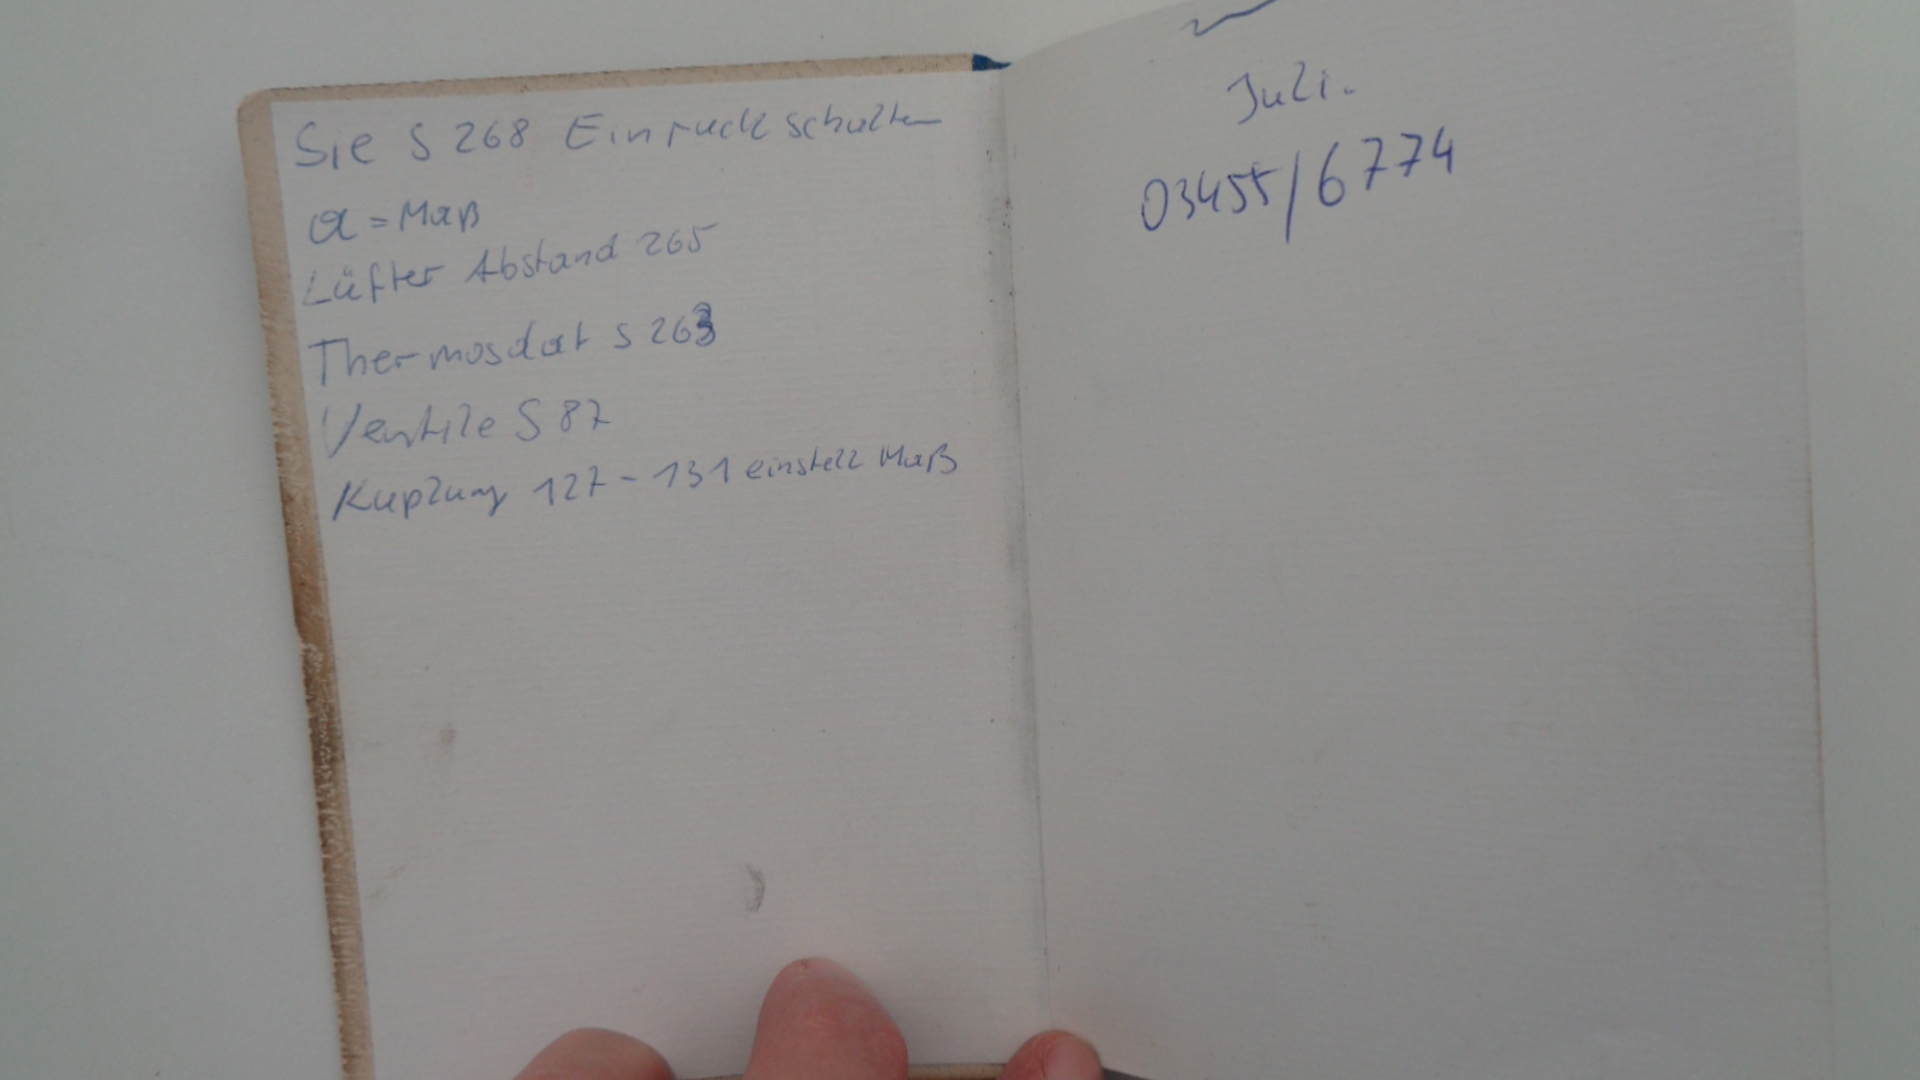 Sie S 268 Einruck schalten
a = Maß
Lüfter Abstand 265
Thermosdat S 263
Ventile S 87
Kuplung 127 - 131 einstell Maß
Juli.
03455/6774